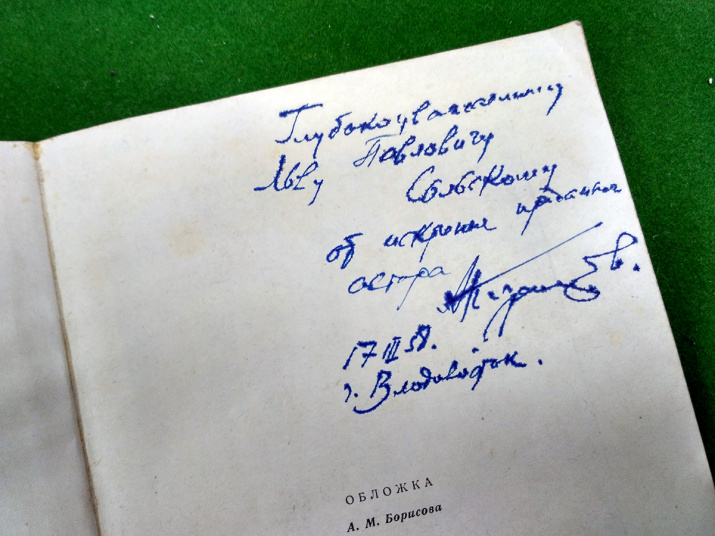 Глубокоуважаемому
Льву Павловичу
Сольскому
от искренне преданного
автора
17 III 58.
г. Владивосток.
ОБЛОЖКА
А. М. Борисова